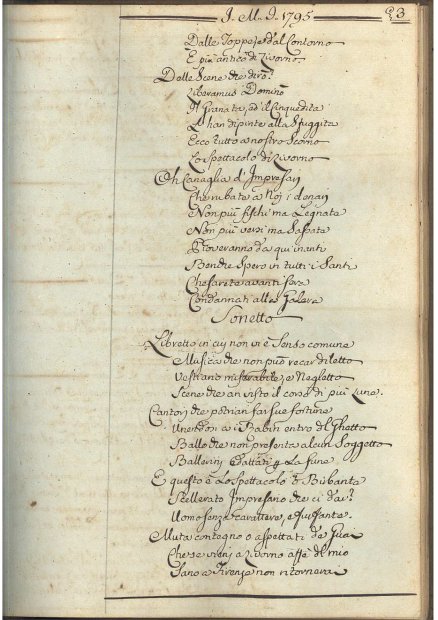 J. M. J. 1795
23
Dalle Toppe, e dal Contorno
È più antico di Livorno
Delle Scene che dirò?
Liberamus Domino
Il Granata, ed il Cinquedita
L'han dipinte alla Sfuggita
Ecco tutto a nostro Scorno
Lo Spettacolo di Livorno
Oh Canaglia d'Impresarj
Che rubate a Noj i denari
Non più fischi ma Legnate
Non più versi ma Sassate
Proveranno da qui inanti
Benche Spero in tutti i Santi
Che sarete avanti sera
Condannati alla Galera
Sonetto
Libretto in cuj non vi è Senso comune
Musica che non può recar diletto
Vestiario miserabile, e Negletto
Scene che an visto il corso di più Lune.
Cantorj che potrian far sue fortune
Unendosi a i Babin entro del Ghetto
Ballo che non presenta alcun Soggetto
Ballerinj adattati p. La fune
E questo è Lo Spettacolo Birbante
Scellerato Impresario che ci dai?
Uomo senza carattere, e furfante
Muta contegno o aspettati de Guai
Che se vienj a Livorno affè del mio
Sano a Firenze non ritornerai